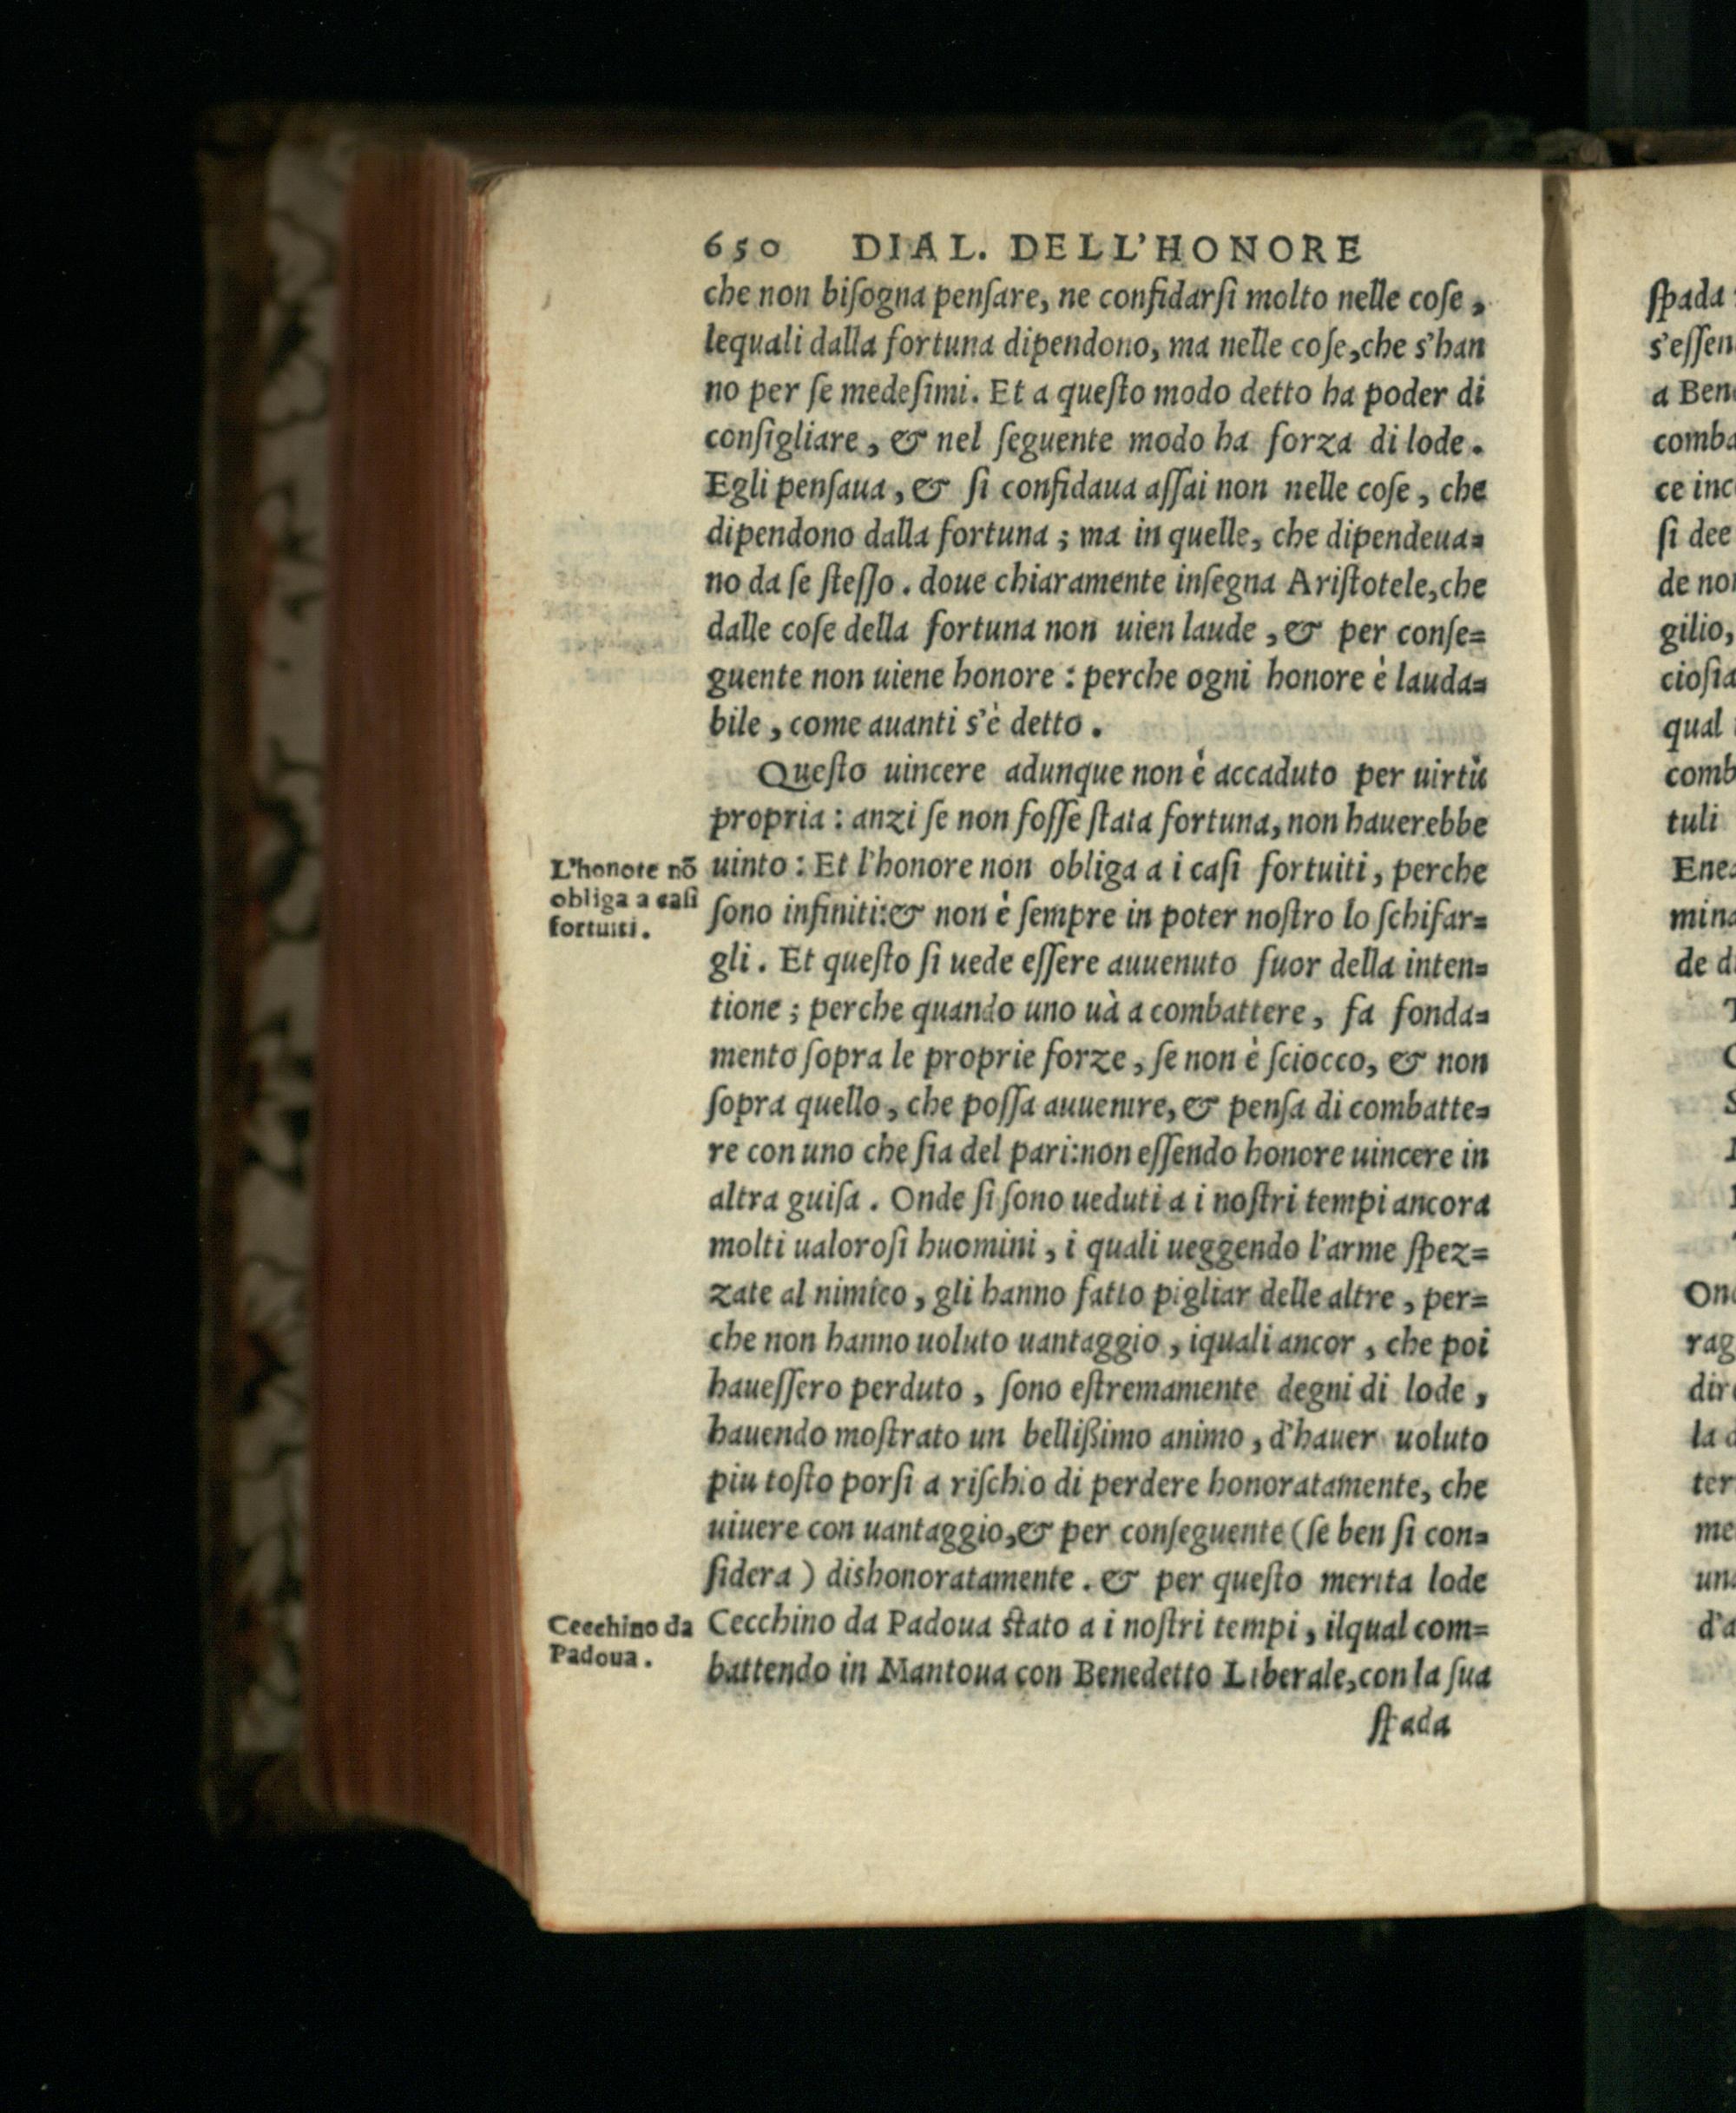 650 DIAL. DELL'HONORE
che non biſogna penſare, ne confidarſi molto nelle coſe,
lequali dalla fortuna dipendono, ma nelle coſe, che s'han
no per ſe medeſimi. Et a queſto modo detto ha poder di
conſigliare, & nel ſeguente modo ha forza di lode.
Egli penſaua, & ſi confidaua aſſai non nelle coſe, che
dipendono dalla fortuna; ma in quelle, che dipendeua=
no da ſe ſteſſo. doue chiaramente inſegna Ariſtotele, che
dalle coſe della fortuna non uien laude, & per conſe=
guente non uiene honore: perche ogni honore è lauda=
bile, come auanti s'è detto.
Queſto uincere adunque non è accaduto per uirtù
propria: anzi ſe non foſſe ſtata fortuna, non hauerebbe
uinto: Et l'honore non obliga a i caſi fortuiti, perche
ſono infiniti: & non è ſempre in poter noſtro lo ſchifar=
gli. Et queſto ſi uede eſſere auuenuto fuor della inten=
tione; perche quando uno uà a combattere, fa fonda=
mento ſopra le proprie forze, ſe non è ſciocco, & non
ſopra quello, che poſſa auuenire, & penſa di combatte=
re con uno che ſia del pari: non eſſendo honore uincere in
altra guiſa. Onde ſi ſono ueduti a i noſtri tempi ancora
molti ualoroſi huomini, i quali ueggendo l'arme ſpez=
zate al nimico, gli hanno fatto pigliar delle altre, per=
che non hanno uoluto uantaggio, iquali ancor, che poi
haueſſero perduto, ſono eſtremamente degni di lode,
hauendo moſtrato un bellißimo animo, d'hauer uoluto
piu toſto porſi a riſchio di perdere honoratamente, che
uiuere con uantaggio, & per conſeguente (ſe ben ſi con=
ſidera) dishonoratamente. & per queſto merita lode
Cecchino da Padoua ſtato a i noſtri tempi, ilqual com=
battendo in Mantoua con Benedetto Liberale, con la ſua
ſpada
L'honore nõ
obliga a caſi
fortuiti.
Cecchino da
Padoua.
ſpada
s'eſſen
a Ben
comba
ce inc
ſi dee
de no
gilio,
cioſia
qual
comb
tuli
Enea
mina
de d
On
rag
dir
la
ter
me
un
d'a